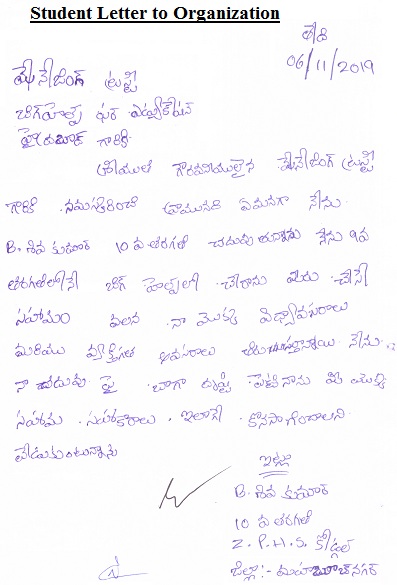 Student Letter to Organization
తేది
06/11/2019
మేనేజింగ్ ట్రస్టీ
బిగ్ హెల్ప్ ఫర్ ఎడ్యుకేషన్
గారికి
శ్రీయుత గౌరవనీయులైన మేనేజింగ్ ట్రస్టీ
గారికి నమస్కరించి వ్రాయునది ఏమనగా నేను
B. శివ కుమార్ 10 వ తరగతి చదువుతున్నాను నేను 9వ
తరగతిలోనే బిగ్ హెల్ప్ లో చేరాను మీరు చేసే
సహాయం వలన నా యొక్క విద్యావసరాలు
మరియు వ్యక్తిగత అవసరాలు నేను
నా చదువు పై బాగా దృష్టి పెట్టినాను మీ యొక్క
సహాయ సహకారాలు ఇలాగే కొనసాగించాలని
వేడుకుంటున్నాను
ఇట్లు
B. శివ కుమార్
10 వ తరగతి
Z.P.H.S. కోడ్గల్
జిల్లా:- మహబూబ్‌నగర్